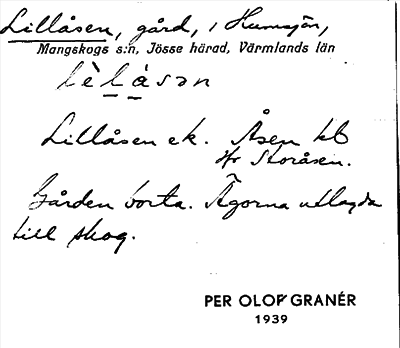 Lillåsen, gård, i Humsjön,
Mangskogs s:n, Jösse härad, Värmlands län
lèlåsən
Lillåsen ek. Åsen kb
jfr Storåsen.
Gården borta. Ägorna utlagda
till skog.
PER OLOF GRANÉR
1939